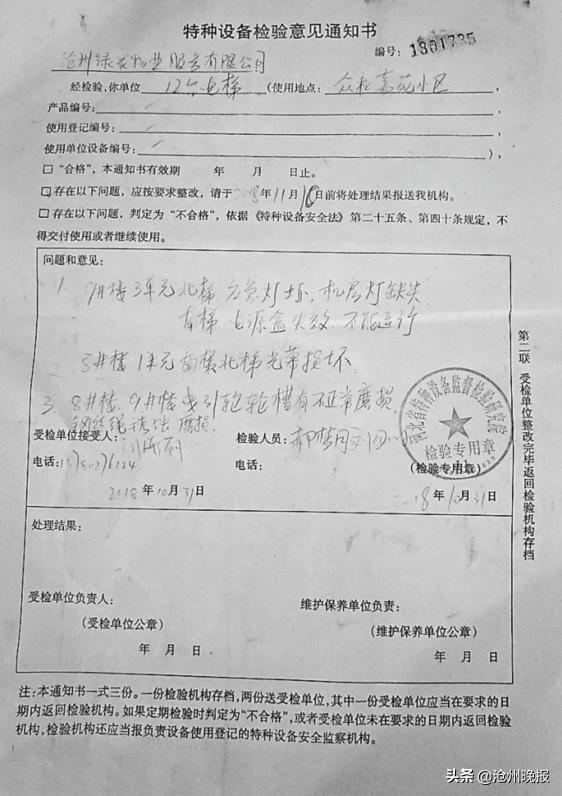 特种设备检验意见通知书
编号：1801735
沧州绿农物业服务有限公司
经检验，你单位 12台电梯 （使用地点：众杜嘉苑小区
产品编号：
使用登记编号：
使用单位设备编号： ），
□“合格”，本通知书有效期 年 月 日止。
□存在以下问题，应按要求整改，请于 18年11月10日前将处理结果报送我机构。
□存在以下问题，判定为“不合格”，依据《特种设备安全法》第二十五条、第四十条规定，不
得交付使用或者继续使用。
问题和意见：
1. 9#楼3单元北梯应急灯坏，机房灯缺失
南梯 电源盒失效 不能运行
2 8#楼1单元南梯北梯光幕损坏
3. 8#楼、9#楼曳引轮轮槽有不正常磨损
钢丝绳锈蚀磨损
受检单位接受人：
检验人员：
电话：
电话：
（检验专用章）
2018年10月31日
2018年10月31日
河北省特种设备监督检验研究院
检验专用章
处理结果：
受检单位负责人：
维护保养单位负责：
（受检单位公章）
（维护保养单位公章）
年 月 日
年 月 日
第二联 受检单位整改完毕返回检验机构存档
注：本通知书一式三份。一份检验机构存档，两份送受检单位，其中一份受检单位应当在要求的日
期内返回检验机构。如果定期检验时判定为“不合格”，或者受检单位未在要求的日期内返回检验
机构，检验机构还应当报负责设备使用登记的特种设备安全监察机构。
头条 @沧州晚报